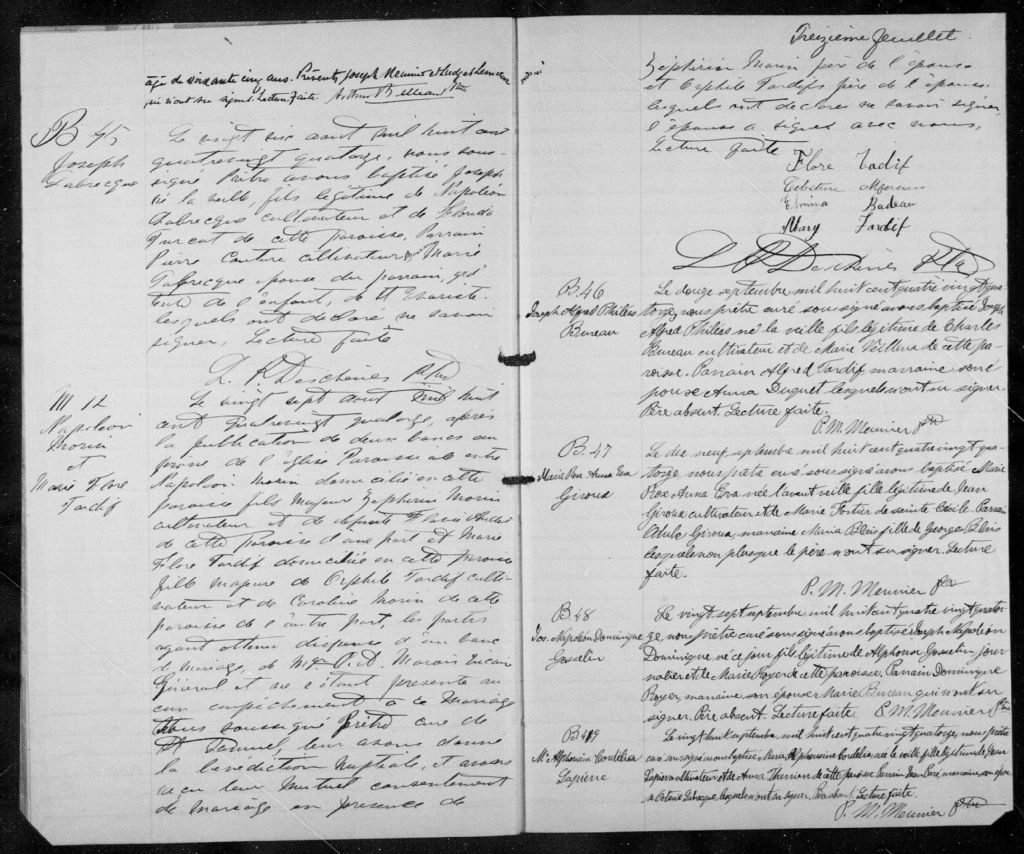 agé de soixante cinq ans. Présents, Joseph Meunier et
qui n'ont su signer. Lecture faite. Arthur Belleau Ptre
B 45
Joseph
Labrecque
Le vingt six aout mil huit cent
quatrevingt quatorze, nous sous-
signé Prêtre avons baptisé Joseph
né la veille, fils légitime de Napoléon
Labrecque cultivateur et de
Turcot de cette paroisse, Parrain
Pierre Couture cultivateur Marie
Labrecque épouse du parrain,
de l'enfant, de
lesquels ont declaré ne savoir
signer, Lecture faite
L. Deschênes Ptre
M 12
Napoléon
Morin
et
Marie Flore
Tardif
Le vingt sept aout mil huit
cent quatrevingt quatorze, après
la publication de deux bancs au
prône de l'église Paroissiale entre
Napoléon Morin domicilié en cette
paroisse fils majeur Zepherin Morin
cultivateur et de defunte Flavie
de cette Paroisse d'une part et Marie
Flore Tardif domiciliée en cette paroisse
fille majeure de Orphile Tardif culti-
vateur et de Caroline Morin de cette
paroisse de l'autre part, les parties
ayant obtenu dispense d'un banc
de mariage, de Mgr Marois Vicaire
Général et ne s'étant presenté au
cun empêchement à ce Mariage
Nous soussigné Prêtre curé de
St Samuel, leur avons donné
la bénédiction Nuptiale, et avons
reçu leur mutuel consentement
de mariage en presence de
Treizième feuillet
Zephirin Morin père de l'époux
et Orphile Tardif père de l'épouse
lesquels ont déclarés ne savoir signer
l'épouse a signé avec nous,
Lecture faite
Flore Tadif
Celestine
Elmina Badeau
Mary Tardif
L Deschênes Ptre
B. 46
Joseph Alfred Philéas
Bureau
Le douze septembre mil huit cent quatre vingt qua
torze, nous prêtre curé soussigné avons baptisé Joseph
Alfred Philéas né la veille fils légitime de Charles
Bureau cultivateur et de Marie Veilleux de cette pa
roisse. Parrain Alfred Tardif marraine son é
pouse Anna Duquet lesquels n'ont su signer.
Père absent. Lecture faite.
P. M. Meunier Ptre
B. 47
Marie Rose Anna Eva
Giroux
Le dix neuf septembre mil huit cent quatre vingt qua
torze nous prêtre curé soussigné avons baptisé Marie
Rose Anna Eva née l'avant veille fille légitime de Jean
Giroux cultivateur et de Marie Fortier de sainte Cécile. Parrain
Giroux, marraine Maria Blais fille de Georges Blais
lesquels non plus que le père n'ont su signer. Lecture
faite.
P. M. Meunier Ptre
B. 48
Jos. Napoléon Dominique
Gosselin
Le vingt sept septembre mil huit cent quatre vingt quator
ze, nous prêtre curé soussigné avons baptisé Joseph Napoléon
Dominique né ce jour fils légitime de Alphonse Gosselin jour
nalier et de Marie Royer de cette paroisse. Parrain Dominique
Royer, marraine son épouse Marie Bureau qui n'ont su
signer. Père absent. Lecture faite. P. M. Meunier Ptre
B 49
Me Alphonsine Cordélia
Lapierre
Le vingt huit septembre mil huit cent quatre vingt quatorze, nous prêtre
curé soussigné avons baptisé Marie Alphonsine Cordélia née la veille fille légitime de Jean
Lapierre cultivateur et de Anna Therrien de cette paroisse Parrain Jean marraine, son épou
se Labrecque, lesquels n'ont su signer. Père absent. Lecture faite.
P. M. Meunier Ptre